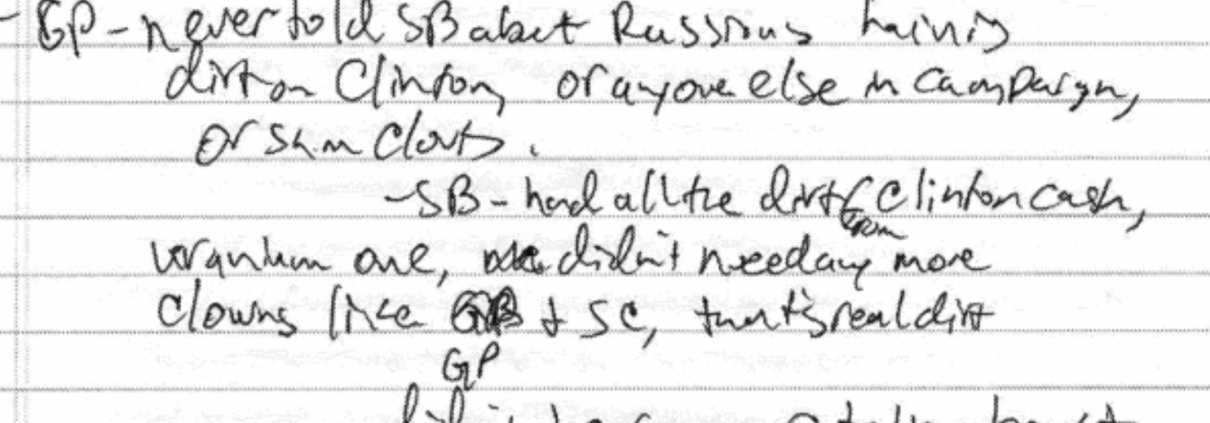 - GP - never told SB about Russians having
dirt on Clinton, or anyone else in campaign,
or Sam Clovis.
- SB - had all the dirt from Clinton Cash,
uranium one, didn't need any more
clowns like GP + SC, that's real dirt